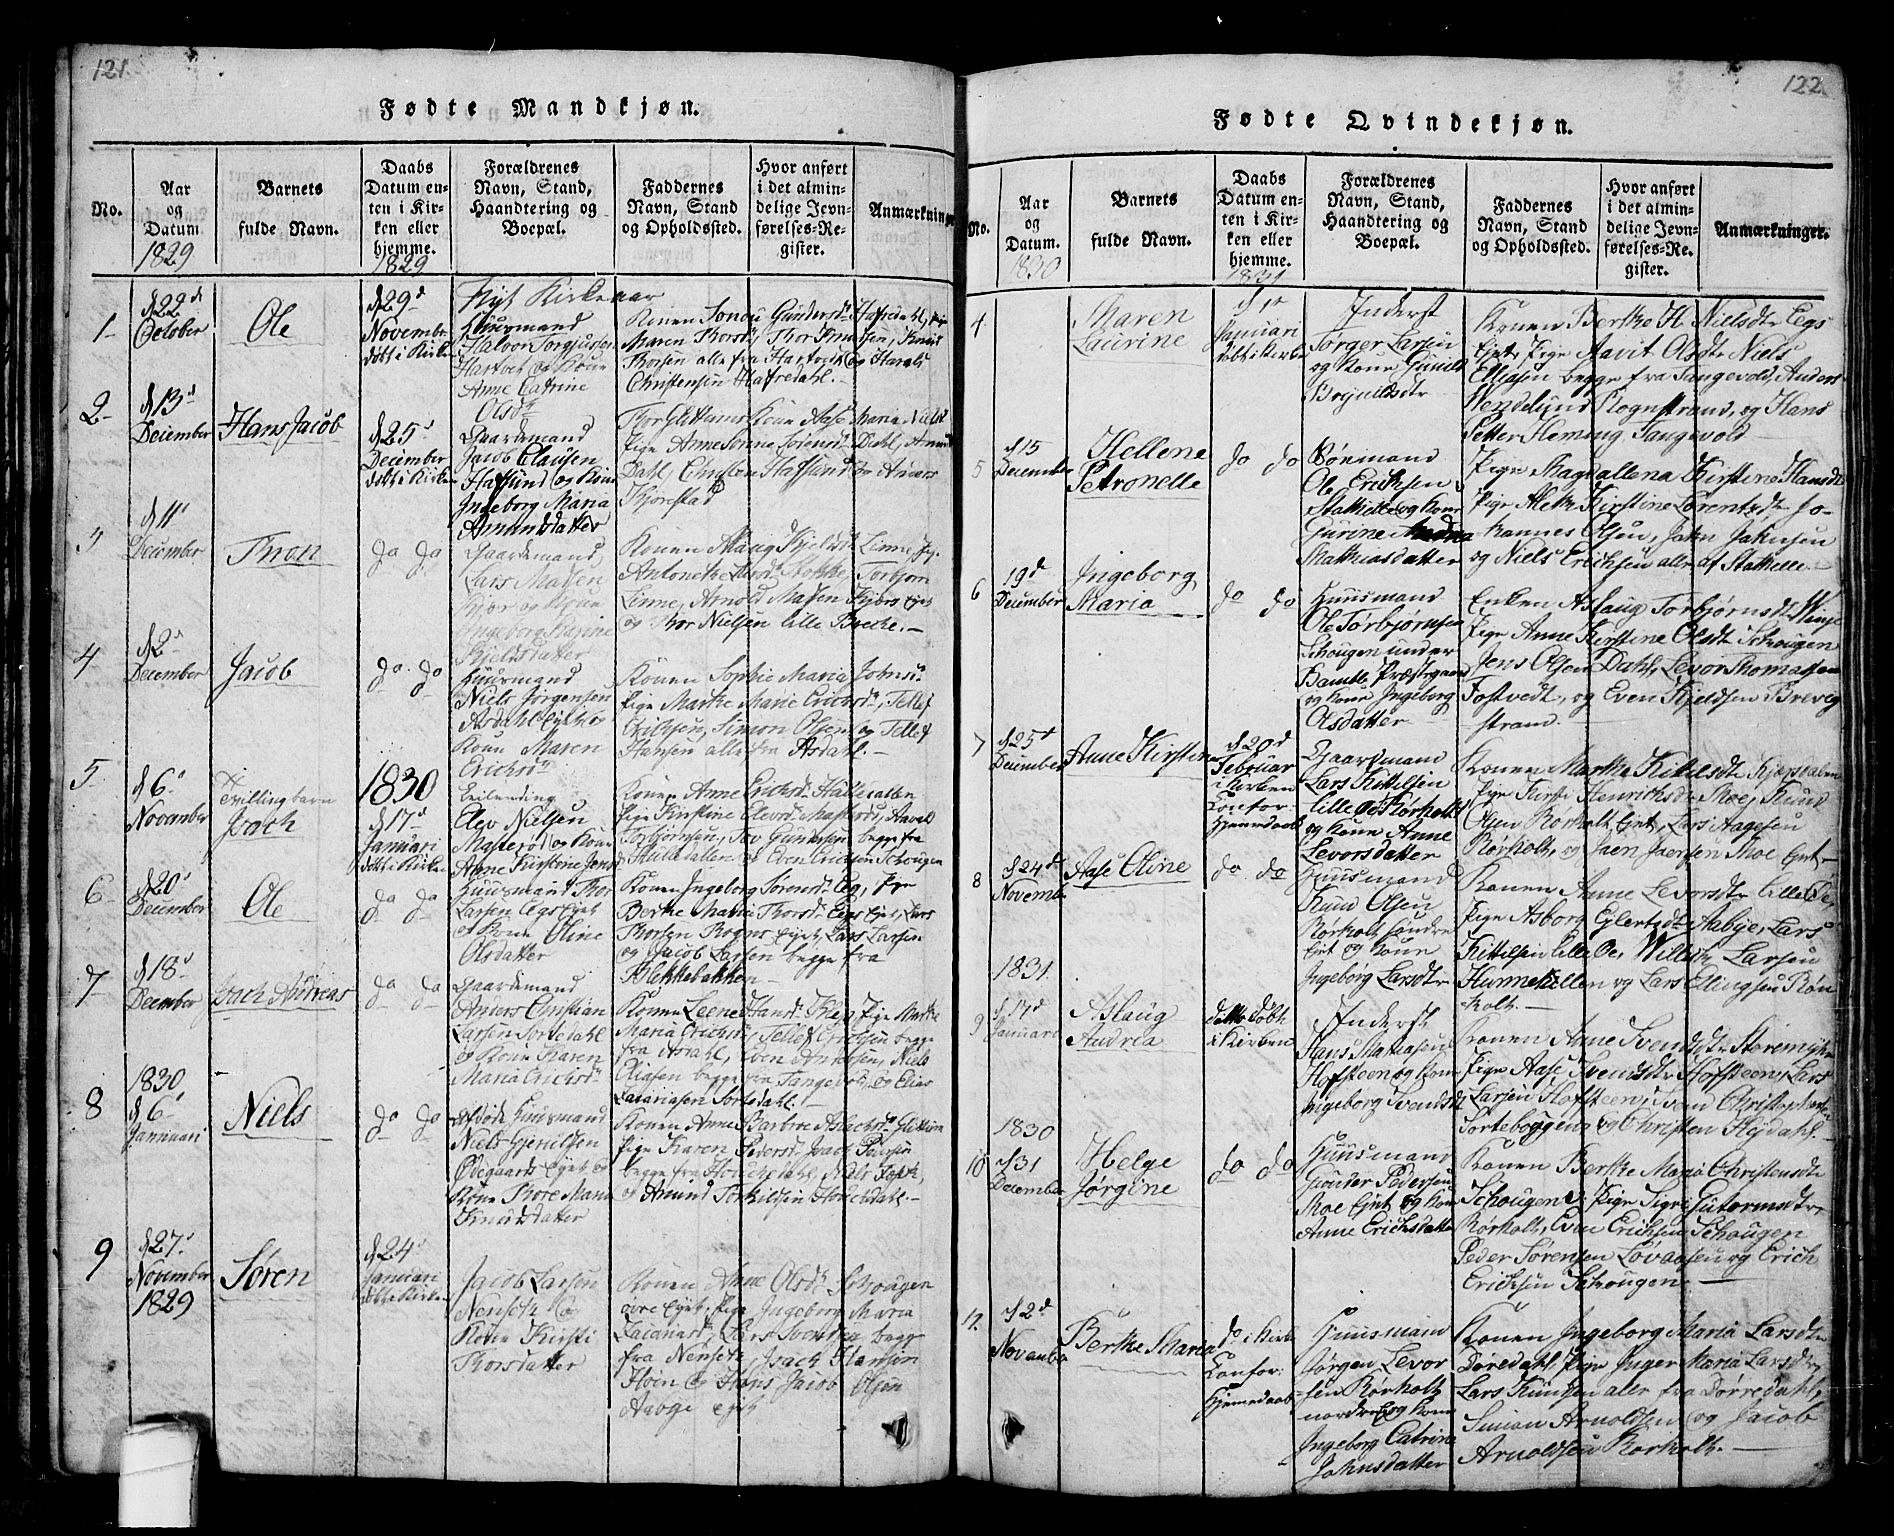 121.
Fødte Mandkjøn.
No.
Aar
og
Datum
1829
Barnets
fulde Navn.
Daabs
Datum en-
ten i Kir-
ken eller
hjemme.
1829
Forældrenes
Navn, Stand,
Haandtering og
Boepæl.
Faddernes
Navn, Stand
og Opholdssted.
Hvor anført
i det almin-
delige Jevn-
førelses-Re-
gister.
Anmærkninger
Nyt Kirkeaar
1-
d 22d
October
Ole
d 29d
November
døbt i Kirken
Huusmand
Halvor Torgjussen
Hartvek og Kone
Anne Catrine
Olsdr
Konen Gundersdr Hafredahl, Pige
Maren Thorsdr, Thor Knudsen, Knud
Thorsen alle fra og Harald
Christensen Hafredahl.-
2-
d 13d
December
Hans Jacob
d 25d
December
døbt i Kirken
Gaardemand
Jacob Claussen
Haflund og Kone
Ingeborg Maria
Amundsdatter
Kone Aase Maria Nielsd
Pige Anne Sørensdr Dahl, Amund
Dahl, Christen Haflund og Anders
Kjørestad
3
d 11d
December
Thon
do do
Gaardemand
Lars Massen
Kjær og Kone
Ingeborg Karine
Kjelsdatter
Konen Kjeldsdr Linne, Pige
Antonette Stokke, Torbjørn
Linne, Arnold Massen Kjærs Ejet
og Thor Nielsen lille Brekke.-
4
d 2d
December
Jacob
do do
Huusmand
Niels Jørgensen
Asdahl Ejet og
Kone Maren
Erichsdr
Konen Sophie Maria Johnsdr
Pige Marthe Marie Erichsdr, Tellef
Erichsen, Simon Olsen og Tellef
Hansen alle fra Asdahl.-
5
d 6d
November
Tvillingbarn
Isach
1830
d 17d
Januari
døbt i Kirken
Elev Nielsen
og Kone
Anne Kirstine
Konen Anne Erichsdr Halledalen
Pige Kirstine Elevsdr
Torbjørnsen, Gundersen begge fra
Halledalen og Even Erichsen Schougen
6
d 20d
December
Ole
do do
Huusmand Thor
Larsen Eegs Ejet
et Kone Oline
Olsdatter
Konen Ingeborg Sørensdr Eeg, Pige
Berthe Maria Thorsdr Eegs Ejet, Lars
Thorsen Rogns Ejet, Lars Larsen
og Jacob Larsen begge fra
Blekkebakken
7-
d 18d
December
Isach Andreas
do do
Gaardemand
Anders Christian
Larsen Sortedahl
og Kone Karen
Maria Erichsdr
Konen Leene Hansdr Pige Marthe
Maria Erichsdr, Tellef Erichsen begge
fra Asdahl, Even Andersen, Niels
Eliasen begge fra Tangevold, og Elias
Zacariasen Sortedahl.-
8
1830
d 6d
Januari
Niels
do do
afdøde Huusmand
Niels Gjerulfsen
Ødegaards Ejet og
Kone Thore Maria
Knudsdatter
Konen Anne Barbroe Isachsdr
Pige Karen Pedersdr, Isach Pedersen
begge fra
og Amund Torkildsen
9
d 27d
November
1829
Søren
d 24d
Januari
døbt i Kirken
Jacob Larsen
Nenseth og
Kone Kirsti
Thorsdatter
Konen Anne Olsdr Schougen
øvre Ejet, Pige Ingeborg Maria
Zacariasdr, Lars Svendsen begge
fra Nenseth, Isach Hansen
Hoen og Hans Jacob Olsen
Aabye Ejet
122
Fødte Qvindekjøn.
No.
Aar
og
Datum.
1830
Barnets
fulde Navn.
Daabs
Datum en-
ten i Kir-
ken eller
hjemme.
1831
Forældrenes
Navn, Stand,
Haandtering og
Boepæl.
Faddernes
Navn, Stand
og Opholdssted.
Hvor anført
i det almin-
delige Jevn-
førelses-Re-
gister.
Anmærkninger.
4
Maren
Laurine
d 1st
Januari
døbt i Kirken
Inderst
Torger Larsen
og Kone Gunild
Brynildsdtr
Konen Berthe H Nielsdtr Eegs
Ejet, Pige Aavit Olsdtr, Niels
Ellefsen begge fra Tangevold, Anders
Wendelsund Rognstrand, og Hans
Petter Fleming Tangevold
5
d 15
December
Hellene
Petronelle
do do
Bonmand
Ole Ericksen
Stathelle og Kone
Gurine Andrea
Mathiasdatter
Pige Magdallena Kirstine Hansdtr
Pige Methe Kirstine Lorentzdtr, Jo-
hannes Olsen, John Johnsen
og Niels Erichsen alle af Stathelle.-
6
19d
December
Ingeborg
Maria
do do
Huusmand
Ole Torbjørnsen
Schougen under
Bamble Præstegaard
og Kone Ingeborg
Olsdatter
Enken Aslaug Torbjørnsdtr Winje
Pige Anne Kirstine Olsdtr Schougen
Jens Olsen Dahl, Levor Thomassen
Tostvedt, og Even Kjeldsen Brevig
strand.
7
d 25d
December
Anne Kirstine
d 20d
Februar
i Kirken
Confor:
Hjemedaab
Gaardmand
Lars Kittilsen
lille Oe Rørholt
og Kone Anne
Levorsdatter
Konen Marthe Kittilsdtr Kjøgsdalen
Pige Kirsti Henriksdtr Moe, Knud
Olsen Rorholt Ejet, Lars Aagesen
Rorholt, og Jaen Jaersen Moe Ejet
8
d 24d
November
Aase Oline
do do
Huusmand
Knud Olsen
Rorholt søndre
Ejet og Kone
Ingeborg Larsdtr
Konen Anne Levorsdtr Lille Oe,
Pige Asborg Eylertsdtr Aabye, Lars
Kittilsen Lille Oe, Larsen
Hummekillen og Lars Ellingsen Røn-
holt.-
1831.
9
d 17d
Januari
Aslaug
Andrea
ditto døbt
i Kirken
Inderst
Hans Mathiasen
Hofsteen og Kone
Ingeborg Svendsdtr
Konen Anne Svendsdtr Storemyhr
Pige Aase Svendsdtr Hofsteen, Lars
Larsen Hofsteen, Svend Christophersen
Sorteboggen og Christen Hejdahl.-
1830
10
d 31
December
Helge
Jørgine
do do
Huusmand
Gunder Pedersen
Moe Ejet og Kone
Anne Erichsdatter
Konen Berthe Maria Christensdtr
Schougen, Pige Sigri Gutormsdtr
Rørholt, Even Erichsen Schougen
Peder Sørensen Løvaasen og Erich
Ericksen Schougen
12.
d 2d
November
Berthe Maria
do i Kirk
Confor:
Hjemedaab
Huusmand
Jørgen Levor
-sen Rørholt
nordre Ejet og Kone
Ingeborg Catrine
Johnsdatter
Konen Ingeborg Maria Larsdtr
Dørredahl, Pige Inger Maria Larsdtr
Lars Knudsen alle fra Dørredahl,
Simon Arnoldsen og Jacob
Arnoldsen Rorholt.-